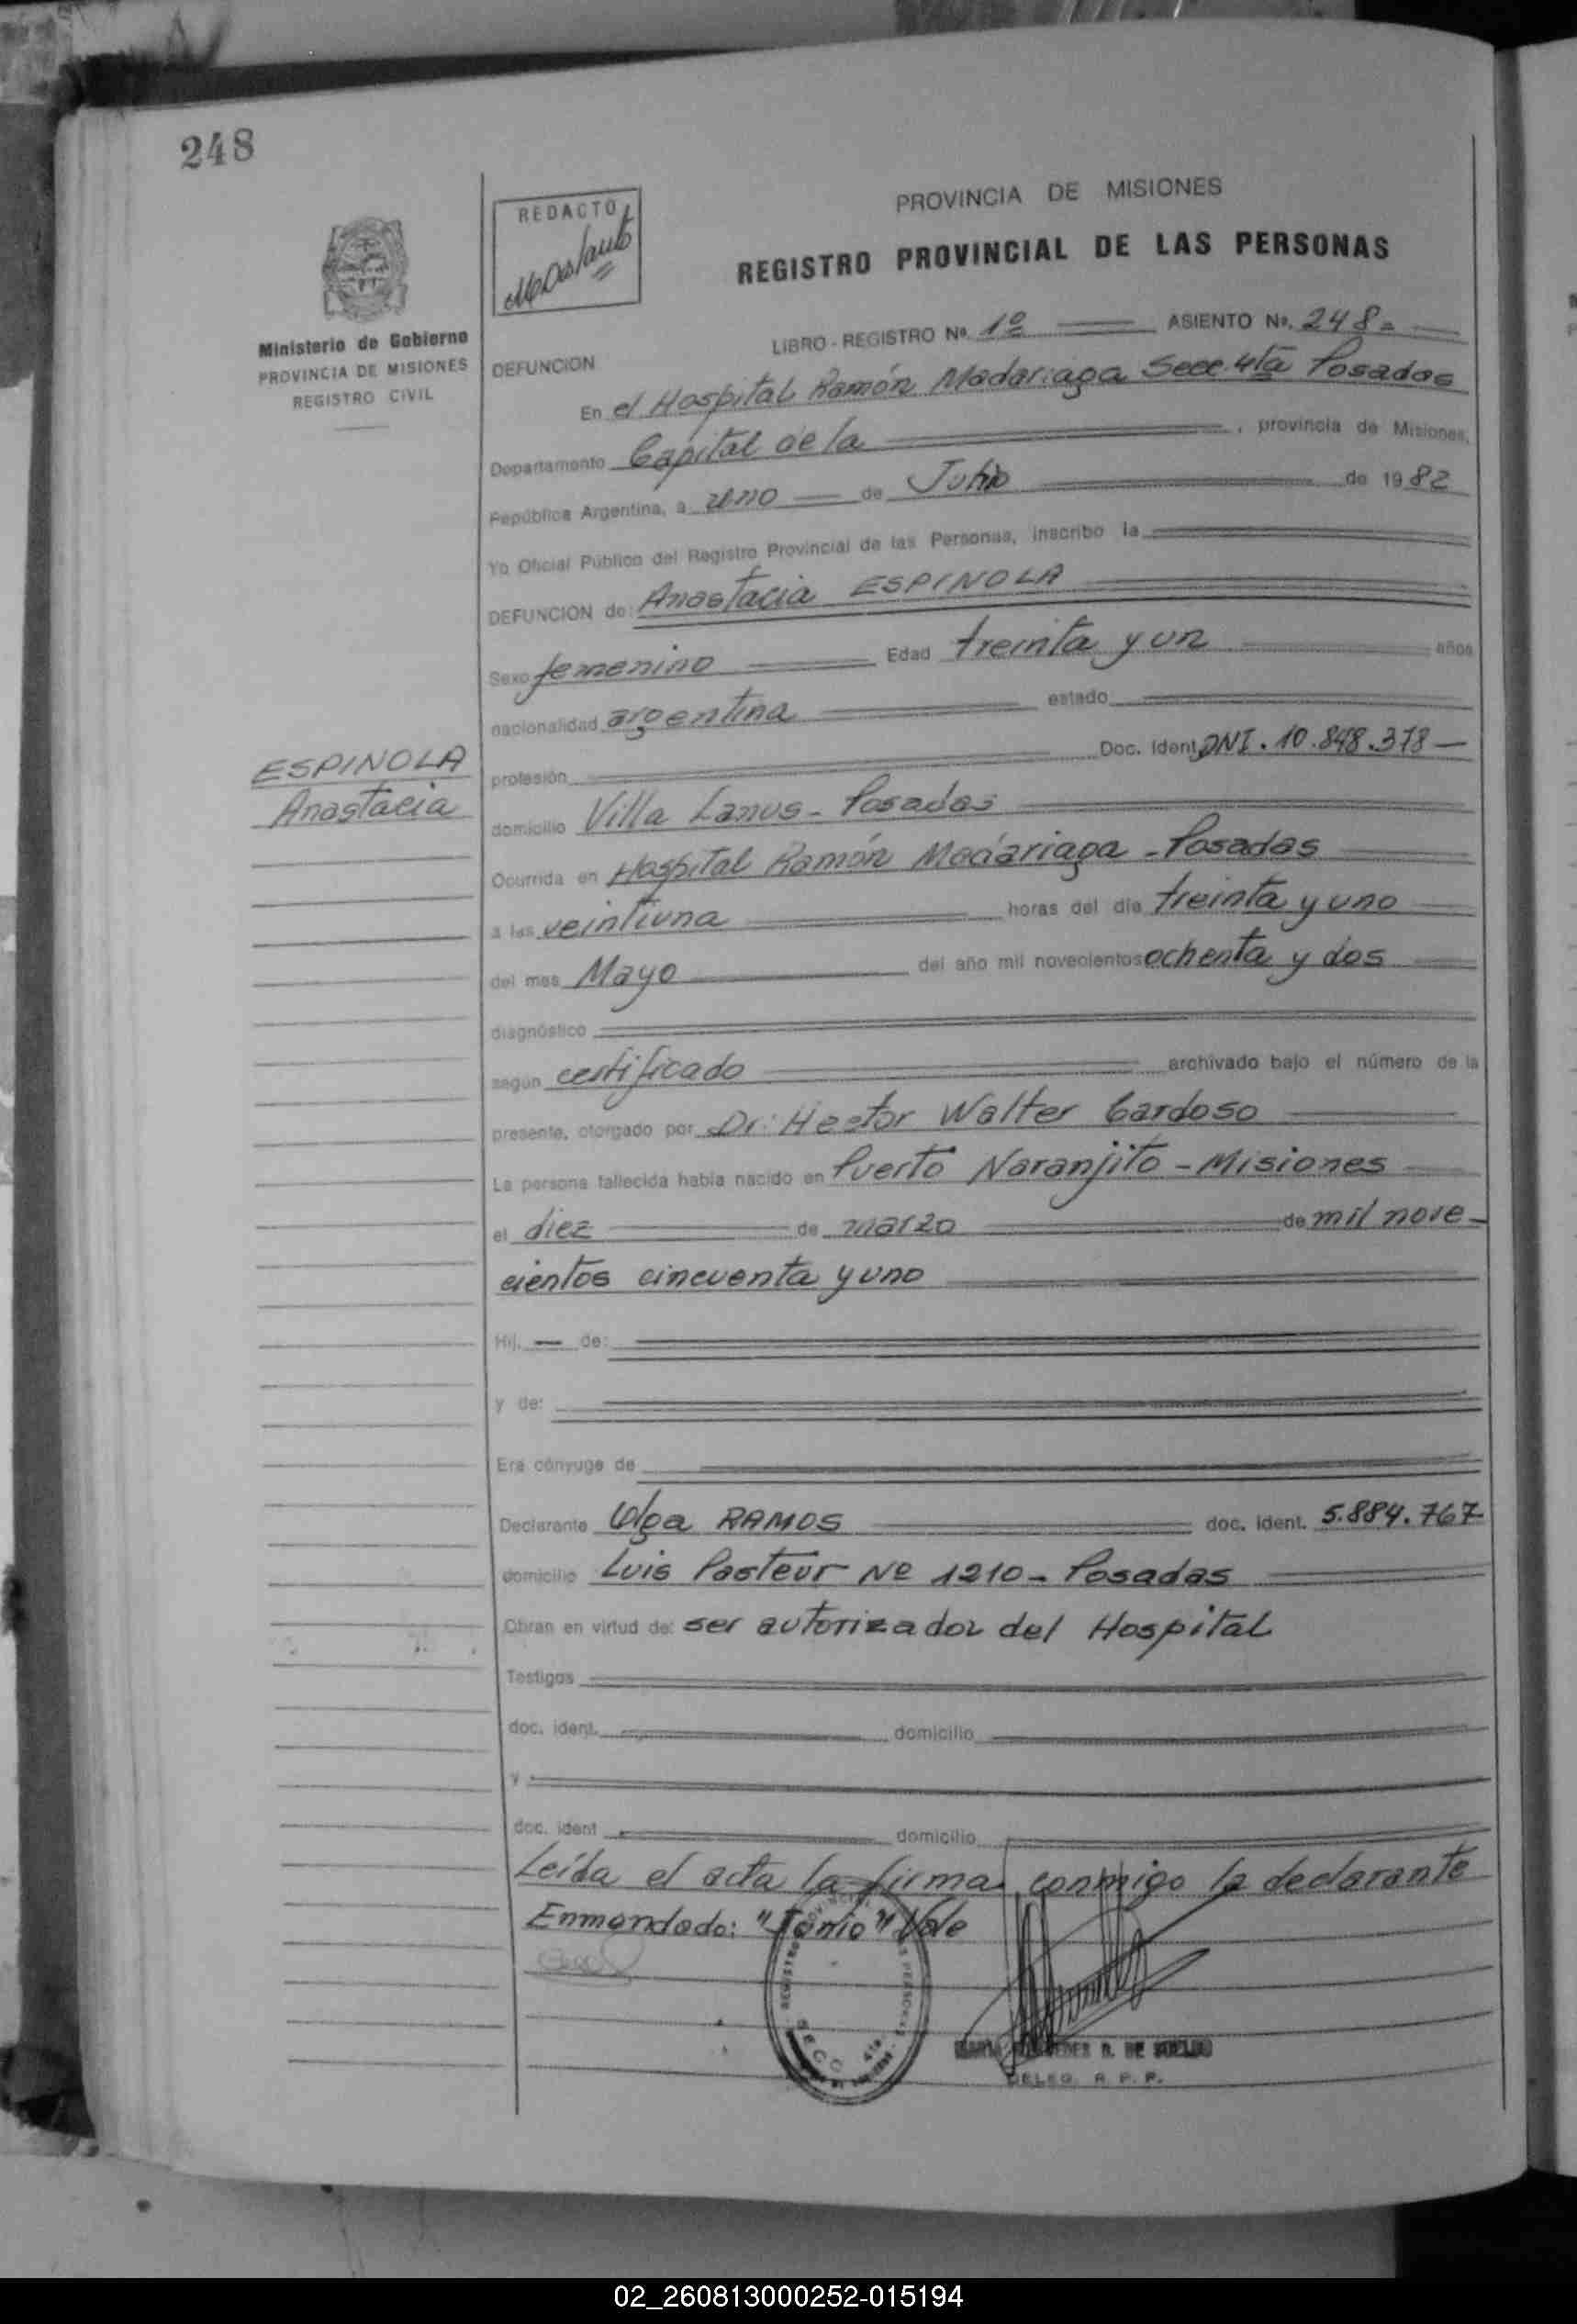 248
REDACTO
PROVINCIA DE MISIONES
REGISTRO PROVINCIAL DE LAS PERSONAS
Ministerio de Gobierno
PROVINCIA DE MISIONES
REGISTRO CIVIL
LIBRO - REGISTRO Nº. 1º ASIENTO Nº. 248=
DEFUNCION
En el Hospital Ramón Madariaga Secc. 4ta Posadas
Departamento Capital de la , provincia de Misiones,
República Argentina, a uno de Junio de 1982
Yo Oficial Público del Registro Provincial de las Personas, inscribo la
DEFUNCION de: Anastacia ESPINOLA
Sexo femenino Edad treinta y un años
nacionalidad argentina estado
ESPINOLA
Anastacia
profesión Doc. Ident. DNI. 10.848.378
domicilio Villa Lanus - Posadas
Ocurrida en Hospital Ramón Madariaga - Posadas
a las veintiuna horas del día treinta y uno
del mes Mayo del año mil novecientos ochenta y dos
diagnóstico
según certificado archivado bajo el número de la
presente, otorgado por Dr: Hector Walter Cardoso
La persona fallecida había nacido en Puerto Naranjito - Misiones
el diez de marzo de mil nove-
cientos cincuenta y uno
Hij. — de:
y de:
Era cónyuge de
Declarante Olga RAMOS doc. ident. 5.884.767
domicilio Luis Pasteur Nº 1210 - Posadas
Obran en virtud de: ser autorizador del Hospital
Testigos
doc. ident. domicilio
y
doc. ident domicilio
Leída el acta la firma conmigo la declarante
Enmendado: "Junio" Vale
DELEG. R. P. P.
02_260813000252-015194